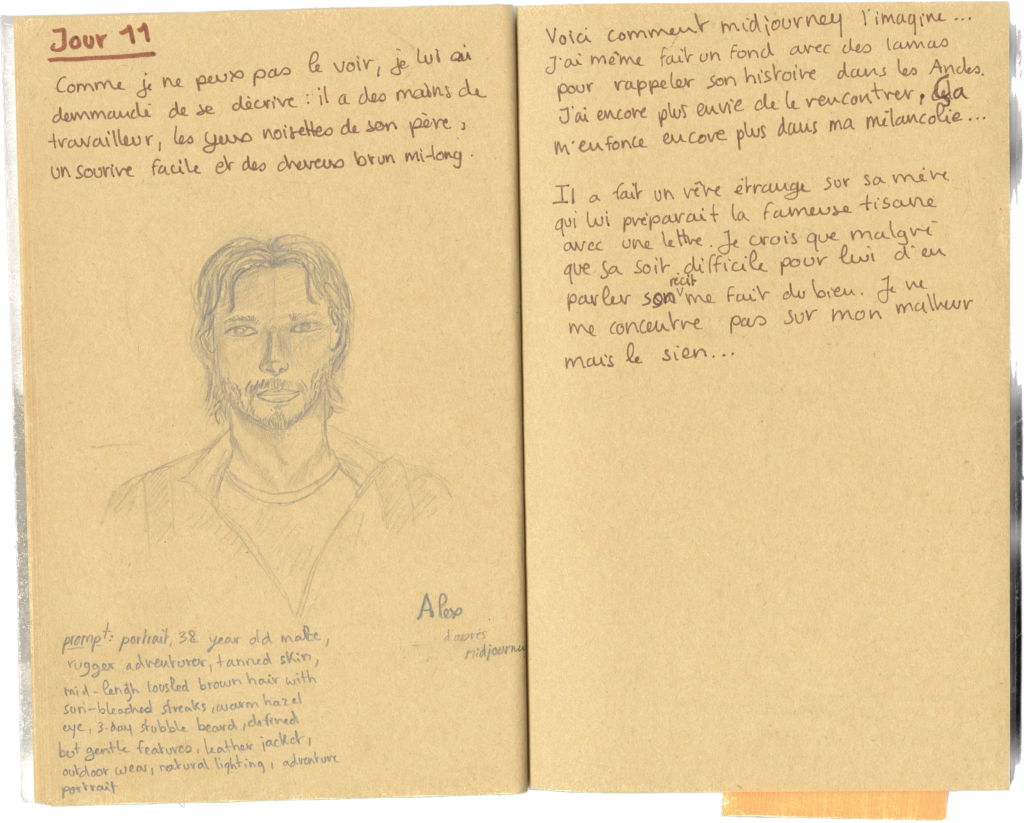 Jour 11
Comme je ne peux pas le voir, je lui ai
demmandé de se décrire : il a des mains de
travailleur, les yeux noisettes de son père,
un sourire facile et des cheveux brun mi-long.
Alex
d'après
Midjourney
prompt: portrait, 38 year old male,
rugger adventurer, tanned skin,
mid-lengh tousled brown hair with
sun-bleached streaks, warm hazel
eye, 3-day stubble beard, defined
but gentle features, leather jacket,
outdoor wear, natural lighting, adventure
portrait
Voici comment midjourney l'imagine...
J'ai même fait un fond avec des lamas
pour rappeler son histoire dans les Andes.
J'ai encore plus envie de le rencontrer. Ça
m'enfonce encore plus dans ma mélancolie...
Il a fait un rêve étrange sur sa mère
qui lui préparait la fameuse tisane
avec une lettre. Je crois que malgré
que sa soit difficile pour lui d'en
parler son récit me fait du bien. Je ne
me concentre pas sur mon malheur
mais le sien...